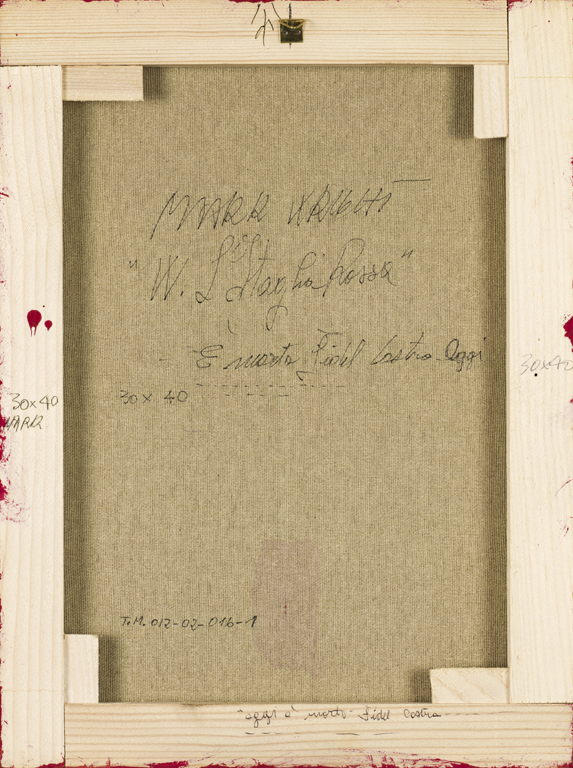 MARK WRIGHT
"W. L'Italia Rossa"
È morto Fidel Castro Oggi
30x40
30x40
MARK
30 x 40
T.M. 012-02-016-1
"oggi è morto Fidel Castro